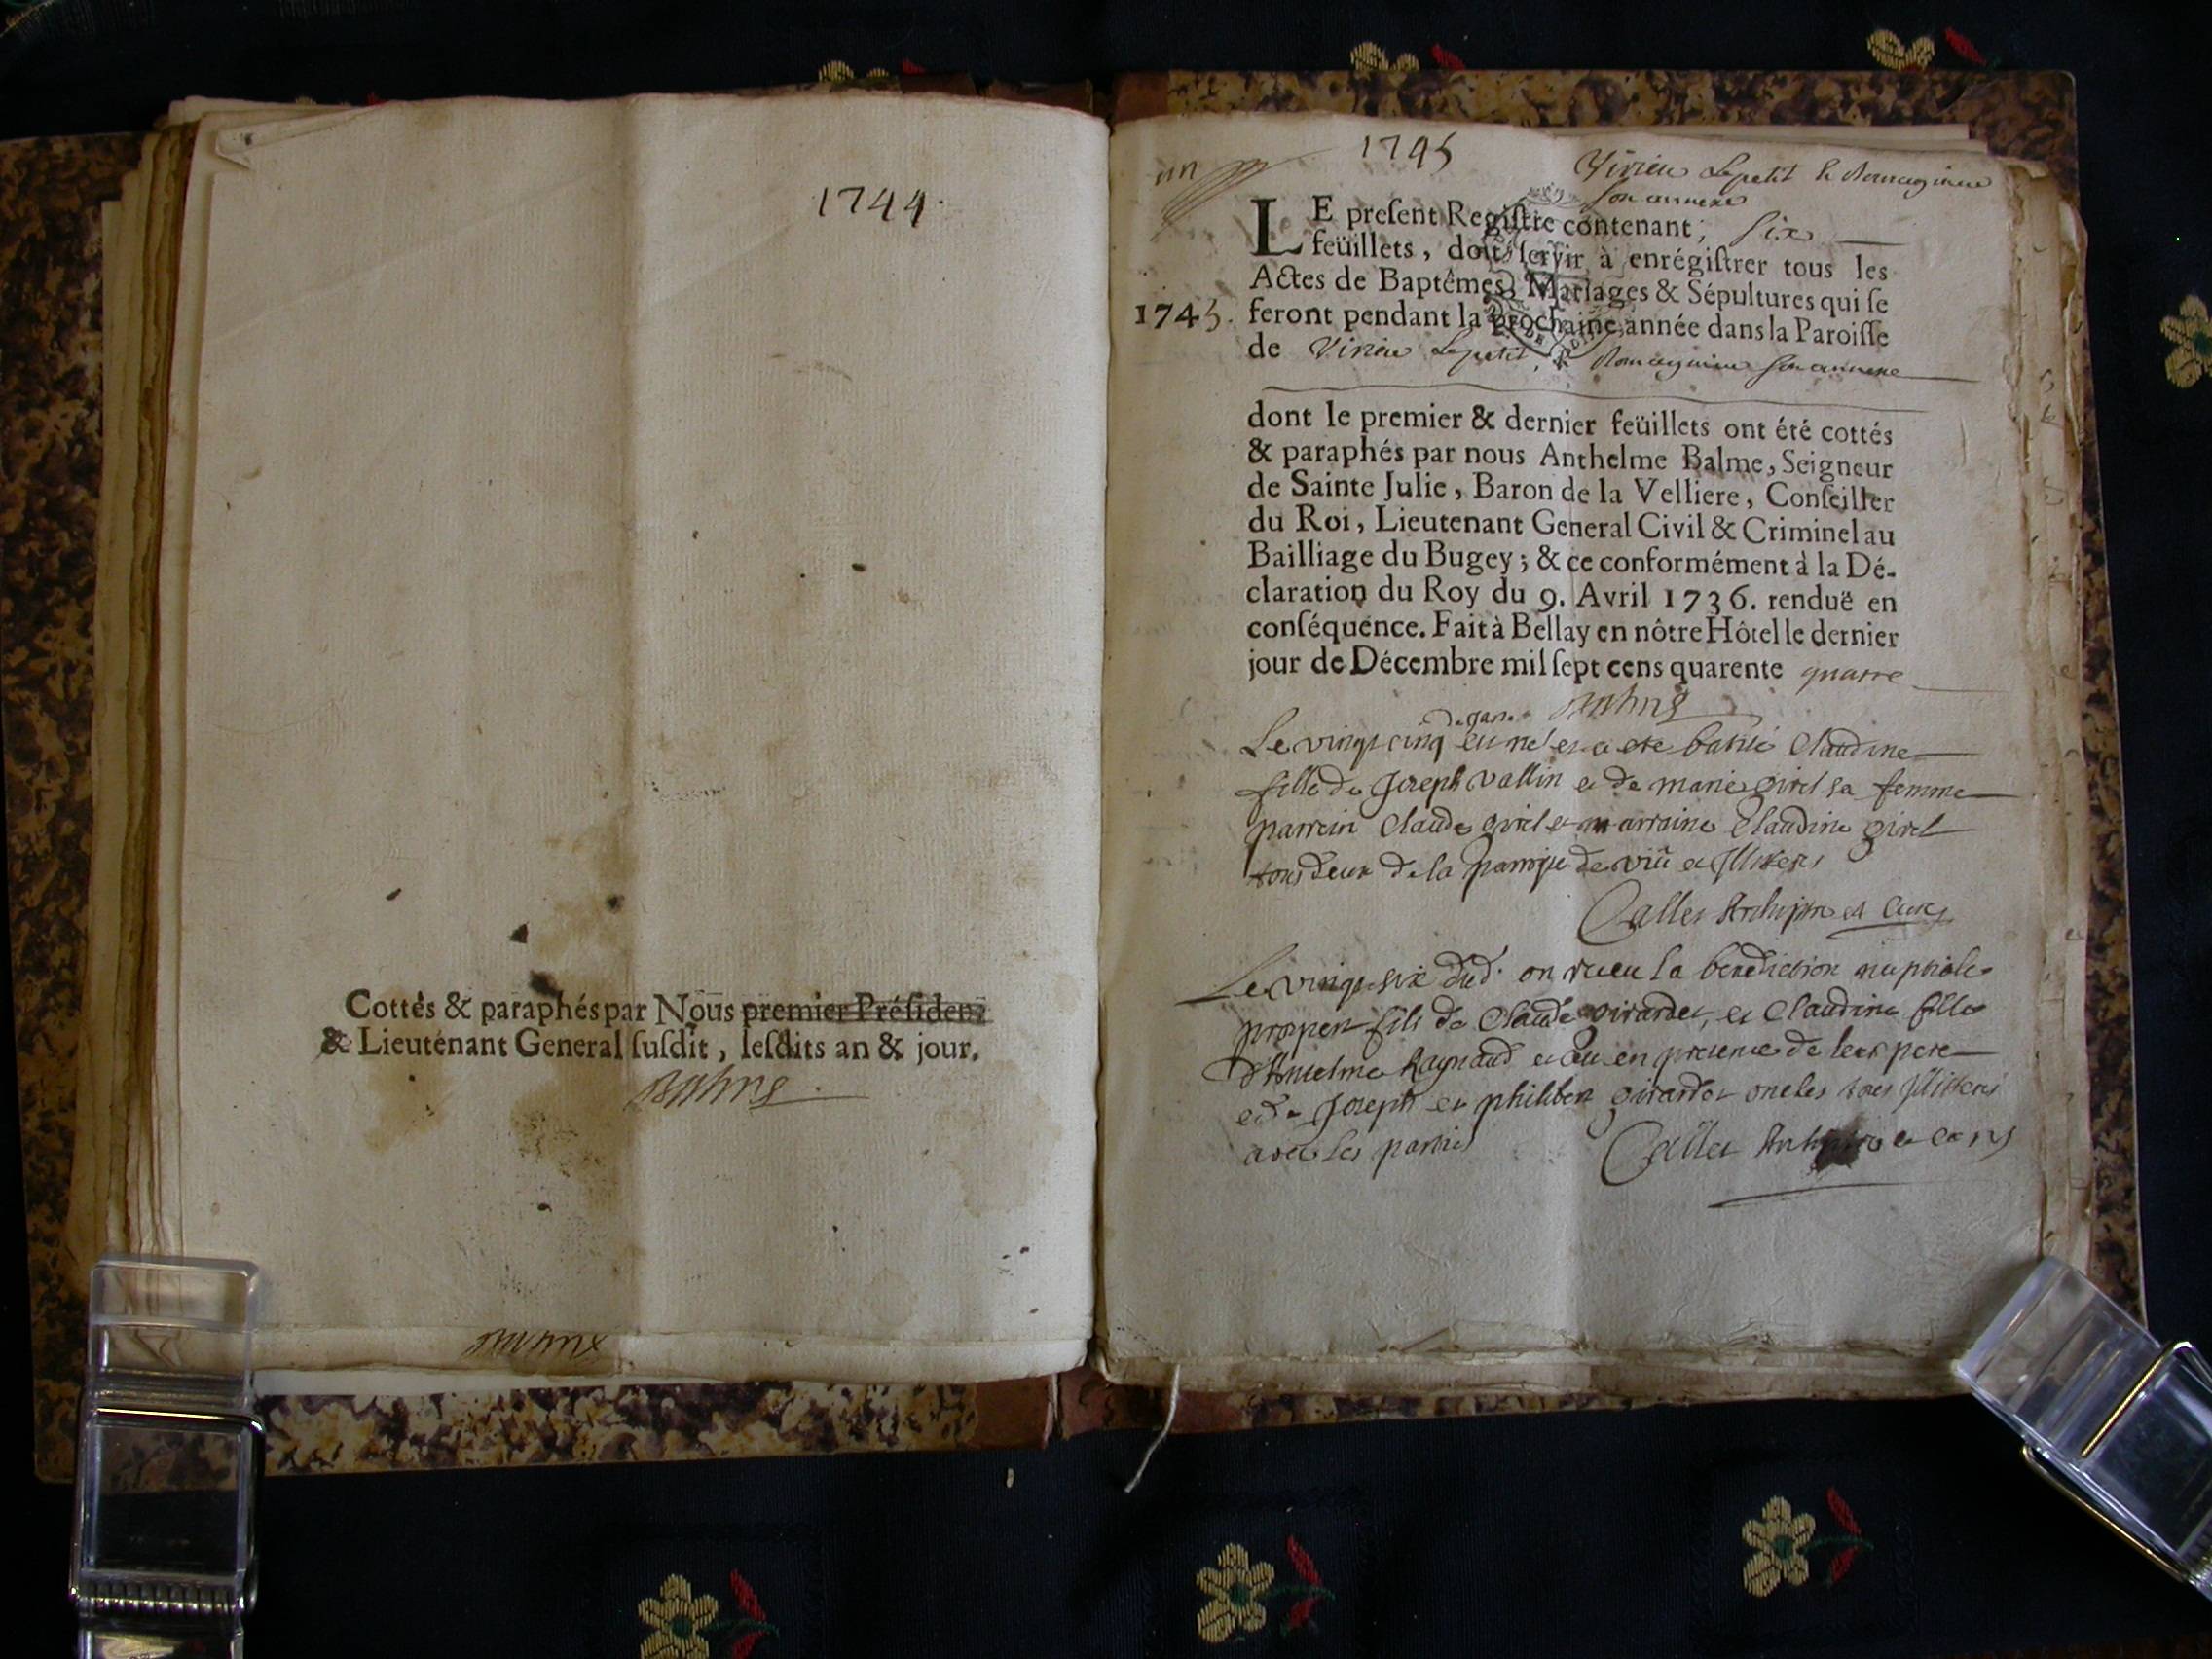 1744.
Cottés & paraphés par Nous premier Préſident
& Lieutenant General ſuſdit, leſdits an & jour.
Balme
un
1745
Virieu Lepetit & Romagnieu
son annexe
LE preſent Regiſtre contenant, Six
feüillets, doit ſervir à enrégiſtrer tous les
Actes de Baptêmes, Mariages & Sépultures qui ſe
1745. feront pendant la prochaine année dans la Paroiſſe
de Virieu Lepetit, & Romagnieu son annexe
dont le premier & dernier feüillets ont été cottés
& paraphés par nous Anthelme Balme, Seigneur
de Sainte Julie, Baron de la Velliere, Conſeiller
du Roi, Lieutenant General Civil & Criminel au
Bailliage du Bugey; & ce conformément à la Dé-
claration du Roy du 9. Avril 1736. renduë en
conſéquence. Fait à Bellay en nôtre Hôtel le dernier
jour de Décembre mil ſept cens quarente quatre
Balme
de jan.
Le vingt cinq est né et a ete batisé Claudine
fille de Joseph Vallin et de marie girel sa femme
parrein Claude girel et marraine Claudine girel
tous deux de la paroisse de et Illiteres
Callet Archiptre et Curé
Le vingt six dud. on receu la benediction nuptiale
fils de Claude girardet, et Claudine fille
d'Anselme Raynaud et ce en presence de leur pere
et de Joseph et philibert girardet oncles tous Illiteres
avec les parties
Callet et curé